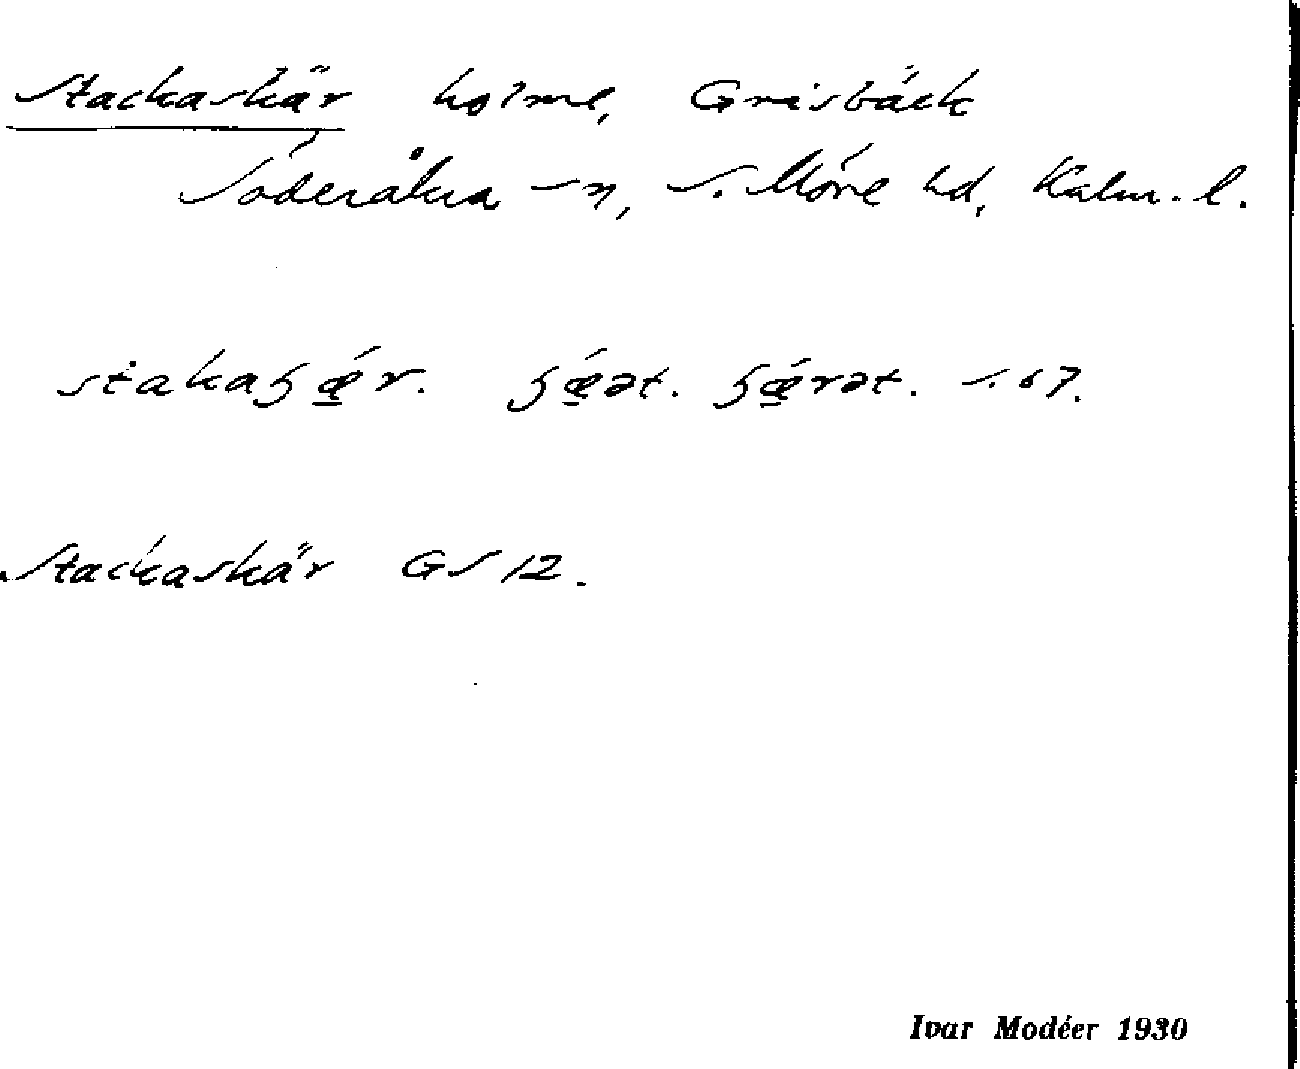 Stackaskär holme, Grisbäck
Söderåkra sn, S. Möre hd, Kalm. l.
stakaꞩǽr. ꞩǽət. ꞩǽrət. s. 67.
Stackaskär GS 12.
Ivar Modéer 1930